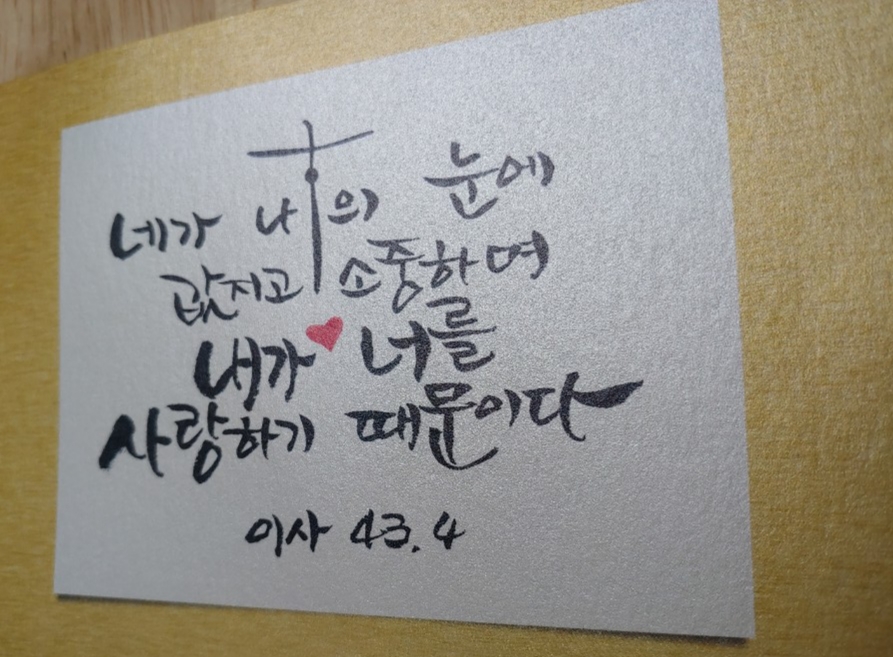 네가 나의 눈에
값지고 소중하며
내가 너를
사랑하기 때문이다
이사 43.4